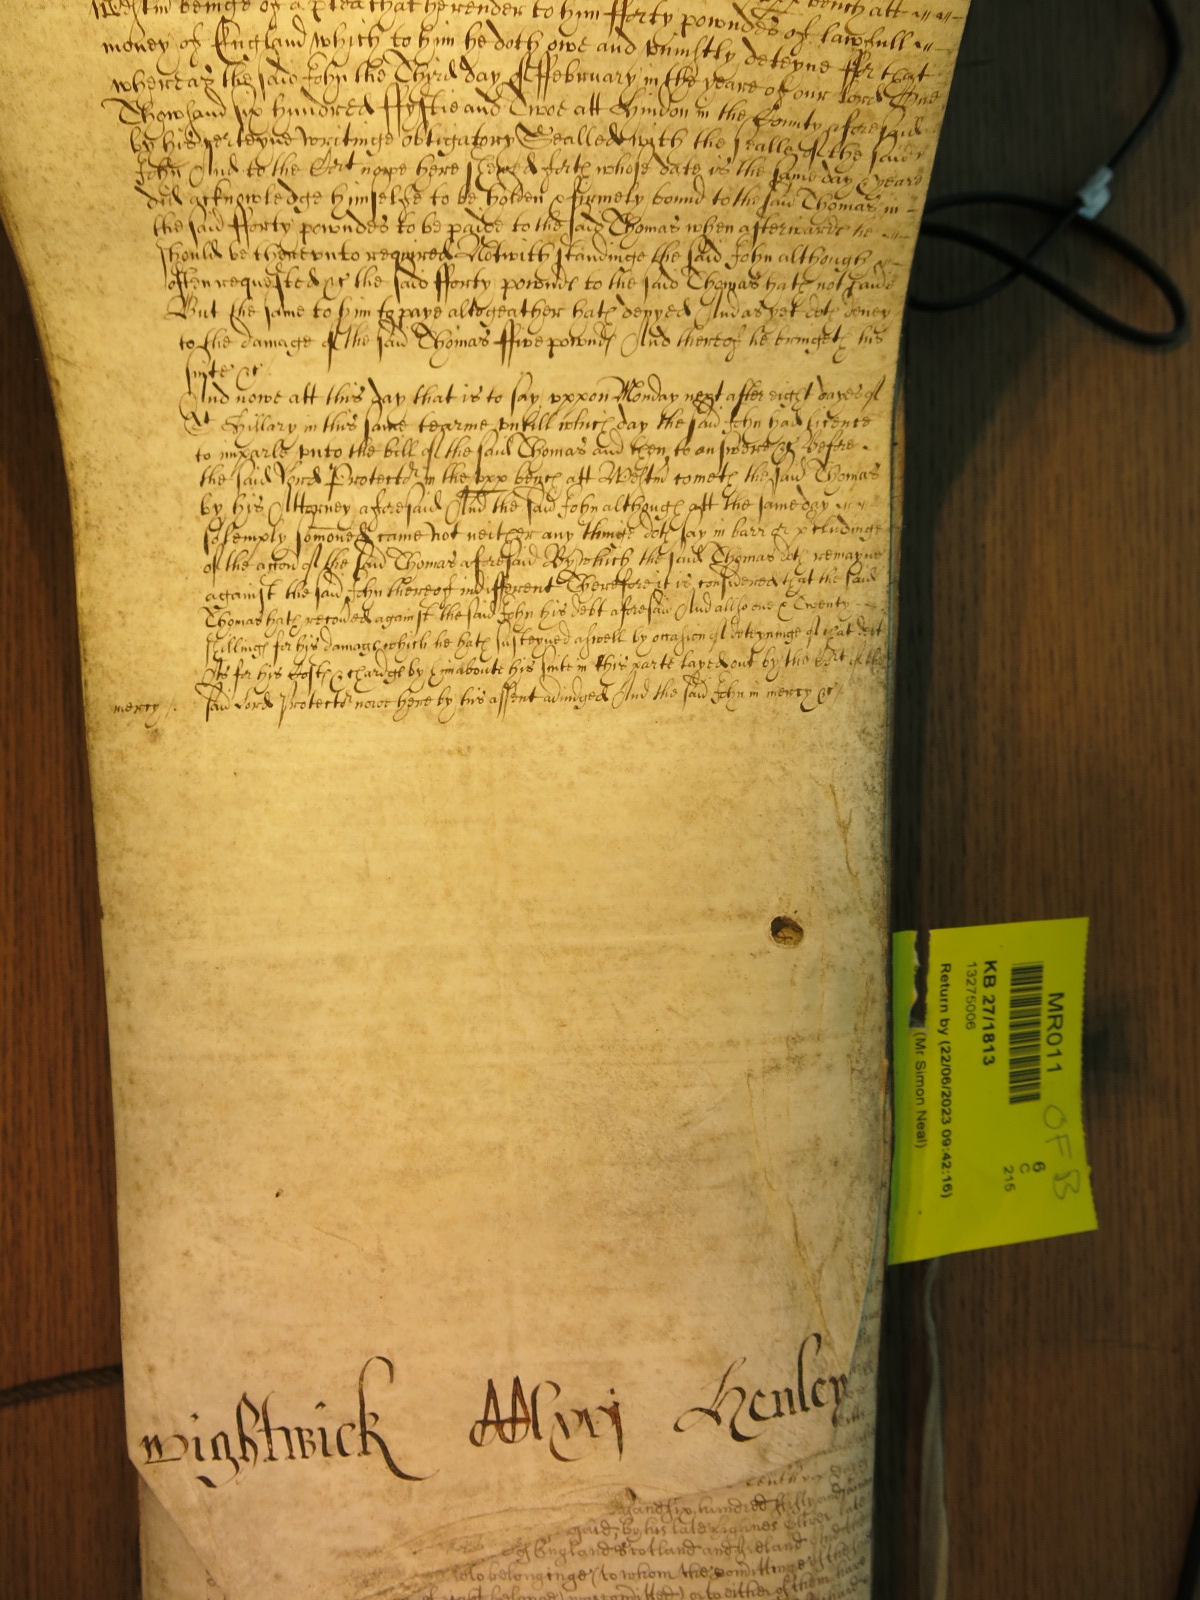 Westm beinge of a plea that he render to him fforty powndes of lawfull
money of England which to him he doth owe and uniustly deteyne ffor that
whereas the said John the Third day of ffebruary in the yeare of our lord One
Thowsand six hundred ffyftie and Twoe att Hindon in the County aforesaid
by his certeyne writinge obligatory Sealled with the sealle of the said
John And to the Cort nowe here shewed forth whose date is the same day & yeare
did acknowledge himselfe to be holden & firmely bound to the said Thomas in
the said fforty powndes to be paide to the said Thomas when afterwards he
should be thereunto required Notwithstandinge the said John although
often requested &c the said fforty pownds to the said Thomas hath not paide
But the same to him to paye altogeather hath denyed And as yet doth deney
to the damage of the said Thomas ffive pownds And thereof he bringeth his
suite &c
And nowe att this day that is to say uppon Monday next after eight dayes of
St Hillary in this same tearme untill which day the said John had licence
to imparle unto the bill of the said Thomas and then to answere &c Before
the said Lord Protector in the upp bench att Westm cometh the said Thomas
by his Attorney aforesaid And the said John although att the same day
solemply somoned came not neither any thinge doth say in barr or p'cludinge
of the accon of the said Thomas aforesaid By which the said Thomas doth remayne
against the said John thereof indifferent Therefore it is considered that the said
Thomas hath recoved against the said John his debt aforesaid And allso one & Twenty
shillings for his damags which he hath susteyned aswell by occasion of deteyninge of that debt
As for his Costs & chardges by him aboute his suite in this parte layed out by the Cort of the
said Lord Protector nowe here by his assent adiudged And the said John in mercy &c
mercy
Wightwick Henley
MR011
OFB
6
C
215
KB 27/1813
13275006
Return by (22/06/2023 09:42:16)
(Mr Simon Neal)
sand six hundred fifty and
said by his late highnes Oliver late
of England Scotland and Ireland
to belonginge (to whom the comittinge of the